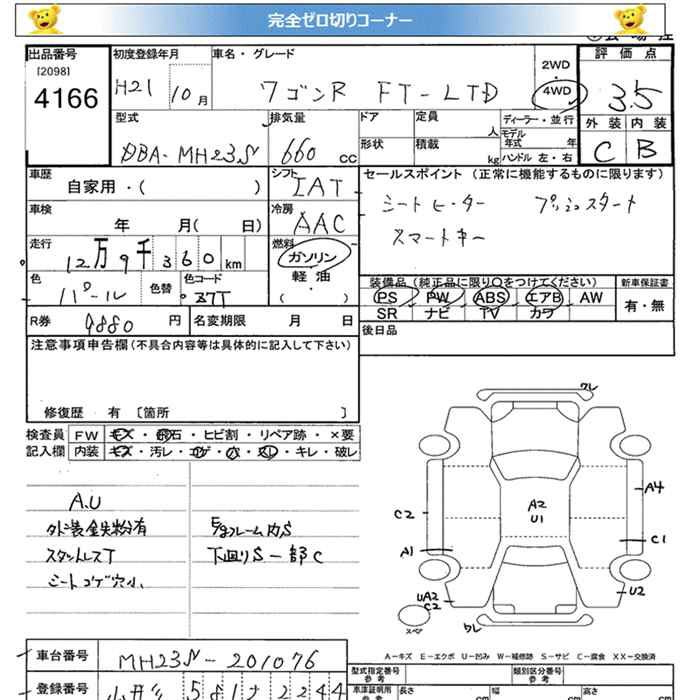 完全ゼロ切りコーナー
出品番号
[2098]
4166
初度登録年月
H21 10月
車名・グレード
ワゴンR FT-LTD
2WD
4WD
評価点
3.5
外装 内装
C B
型式
DBA-MH23S
排気量
660 cc
ドア
形状
定員
人
積載
kg
ディーラー・並行
モデル年式 年
ハンドル 左・右
車歴
自家用・( )
シフト
IAT
セールスポイント (正常に機能するものに限ります)
シートヒーター プッシュスタート
スマートキー
車検
年 月( 日)
冷房
AAC
走行
12万9千360km
燃料
ガソリン
軽・油
( )
色
パール
色替
色コード
37T
装備品(純正品に限り○をつけてください)
PS PW ABS エアB AW
SR ナビ TV カワ
新車保証書
有・無
R券 9880 円
名変期限 月 日
後日品
注意事項申告欄(不具合内容等は具体的に記入して下さい)
修復歴 有 〔箇所 〕
検査員
記入欄
FW キズ・飛石・ヒビ割・リペア跡・×要
内装 キズ・汚レ・コゲ・穴・スレ・キレ・破レ
A.U
外装鉄粉有
スタットレスT
シートコゲ穴小
E/gフレーム内S
下廻りS一部C
ワレ
A2
U1
A4
C2
C1
A1
UA2
C2
U2
スペア
ワレ
A-キズ E-エクボ U-凹み W-補修跡 S-サビ C-腐食 XX-交換済
車台番号
MH23S-201076
登録番号
581 2244
型式指定番号
参考
類別区分番号
参考
車庫証明用
参考
長さ cm
幅 cm
高さ cm